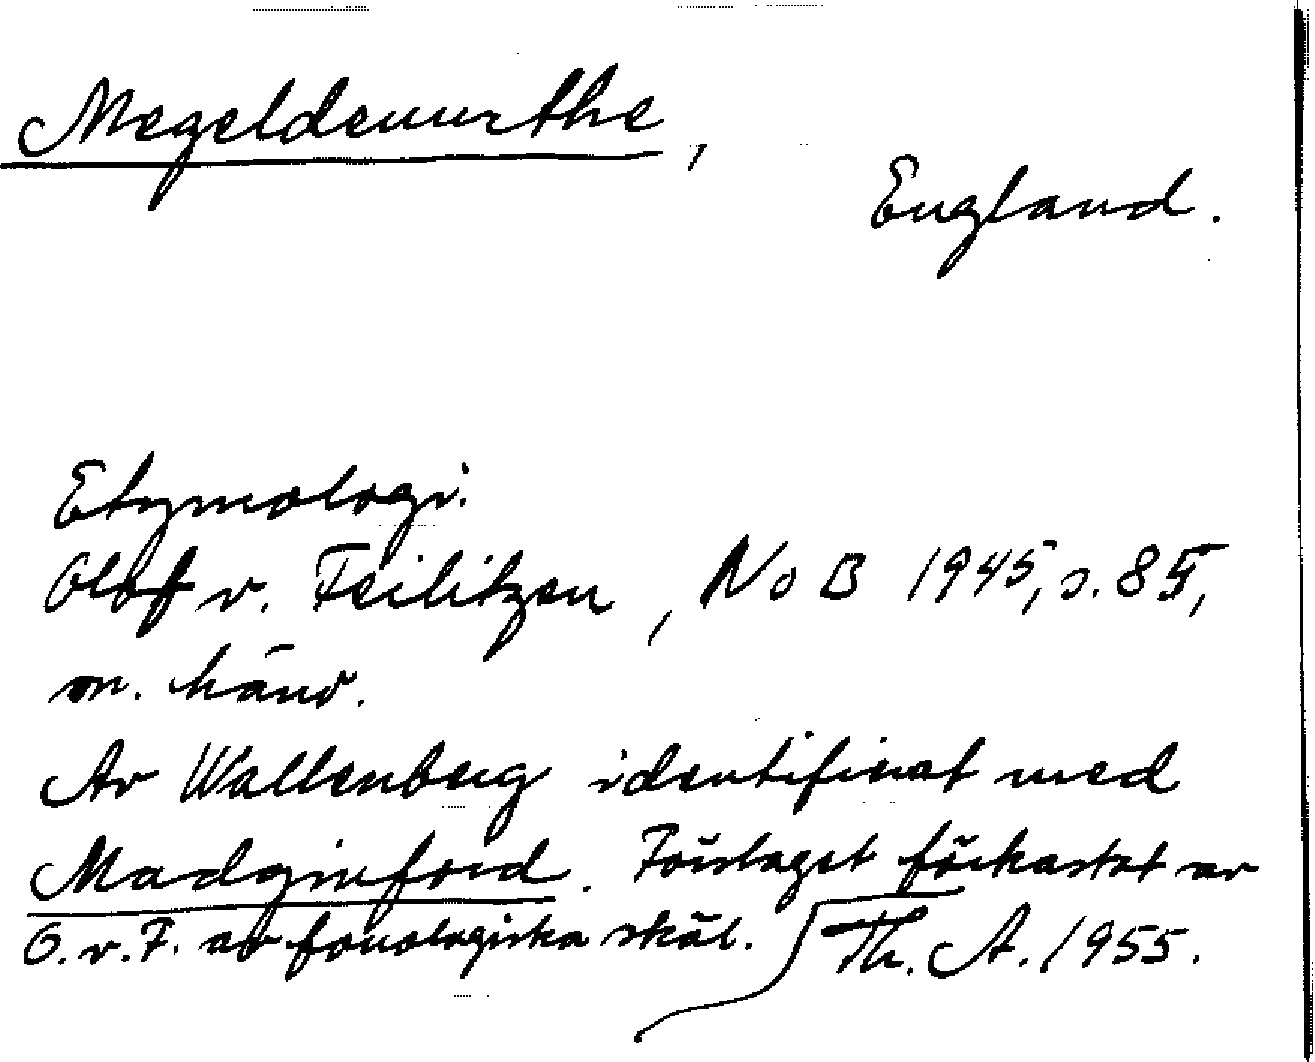 Megeldewurthe,
England.
Etymologi.
Olof v. Feilitzen, NoB 1945, s. 85,
m. hänv.
Av Wallenberg identifierat med
Madginford. Förslaget förkastat av
O.v.F. av fonologiska skäl.
Th. A. 1955.